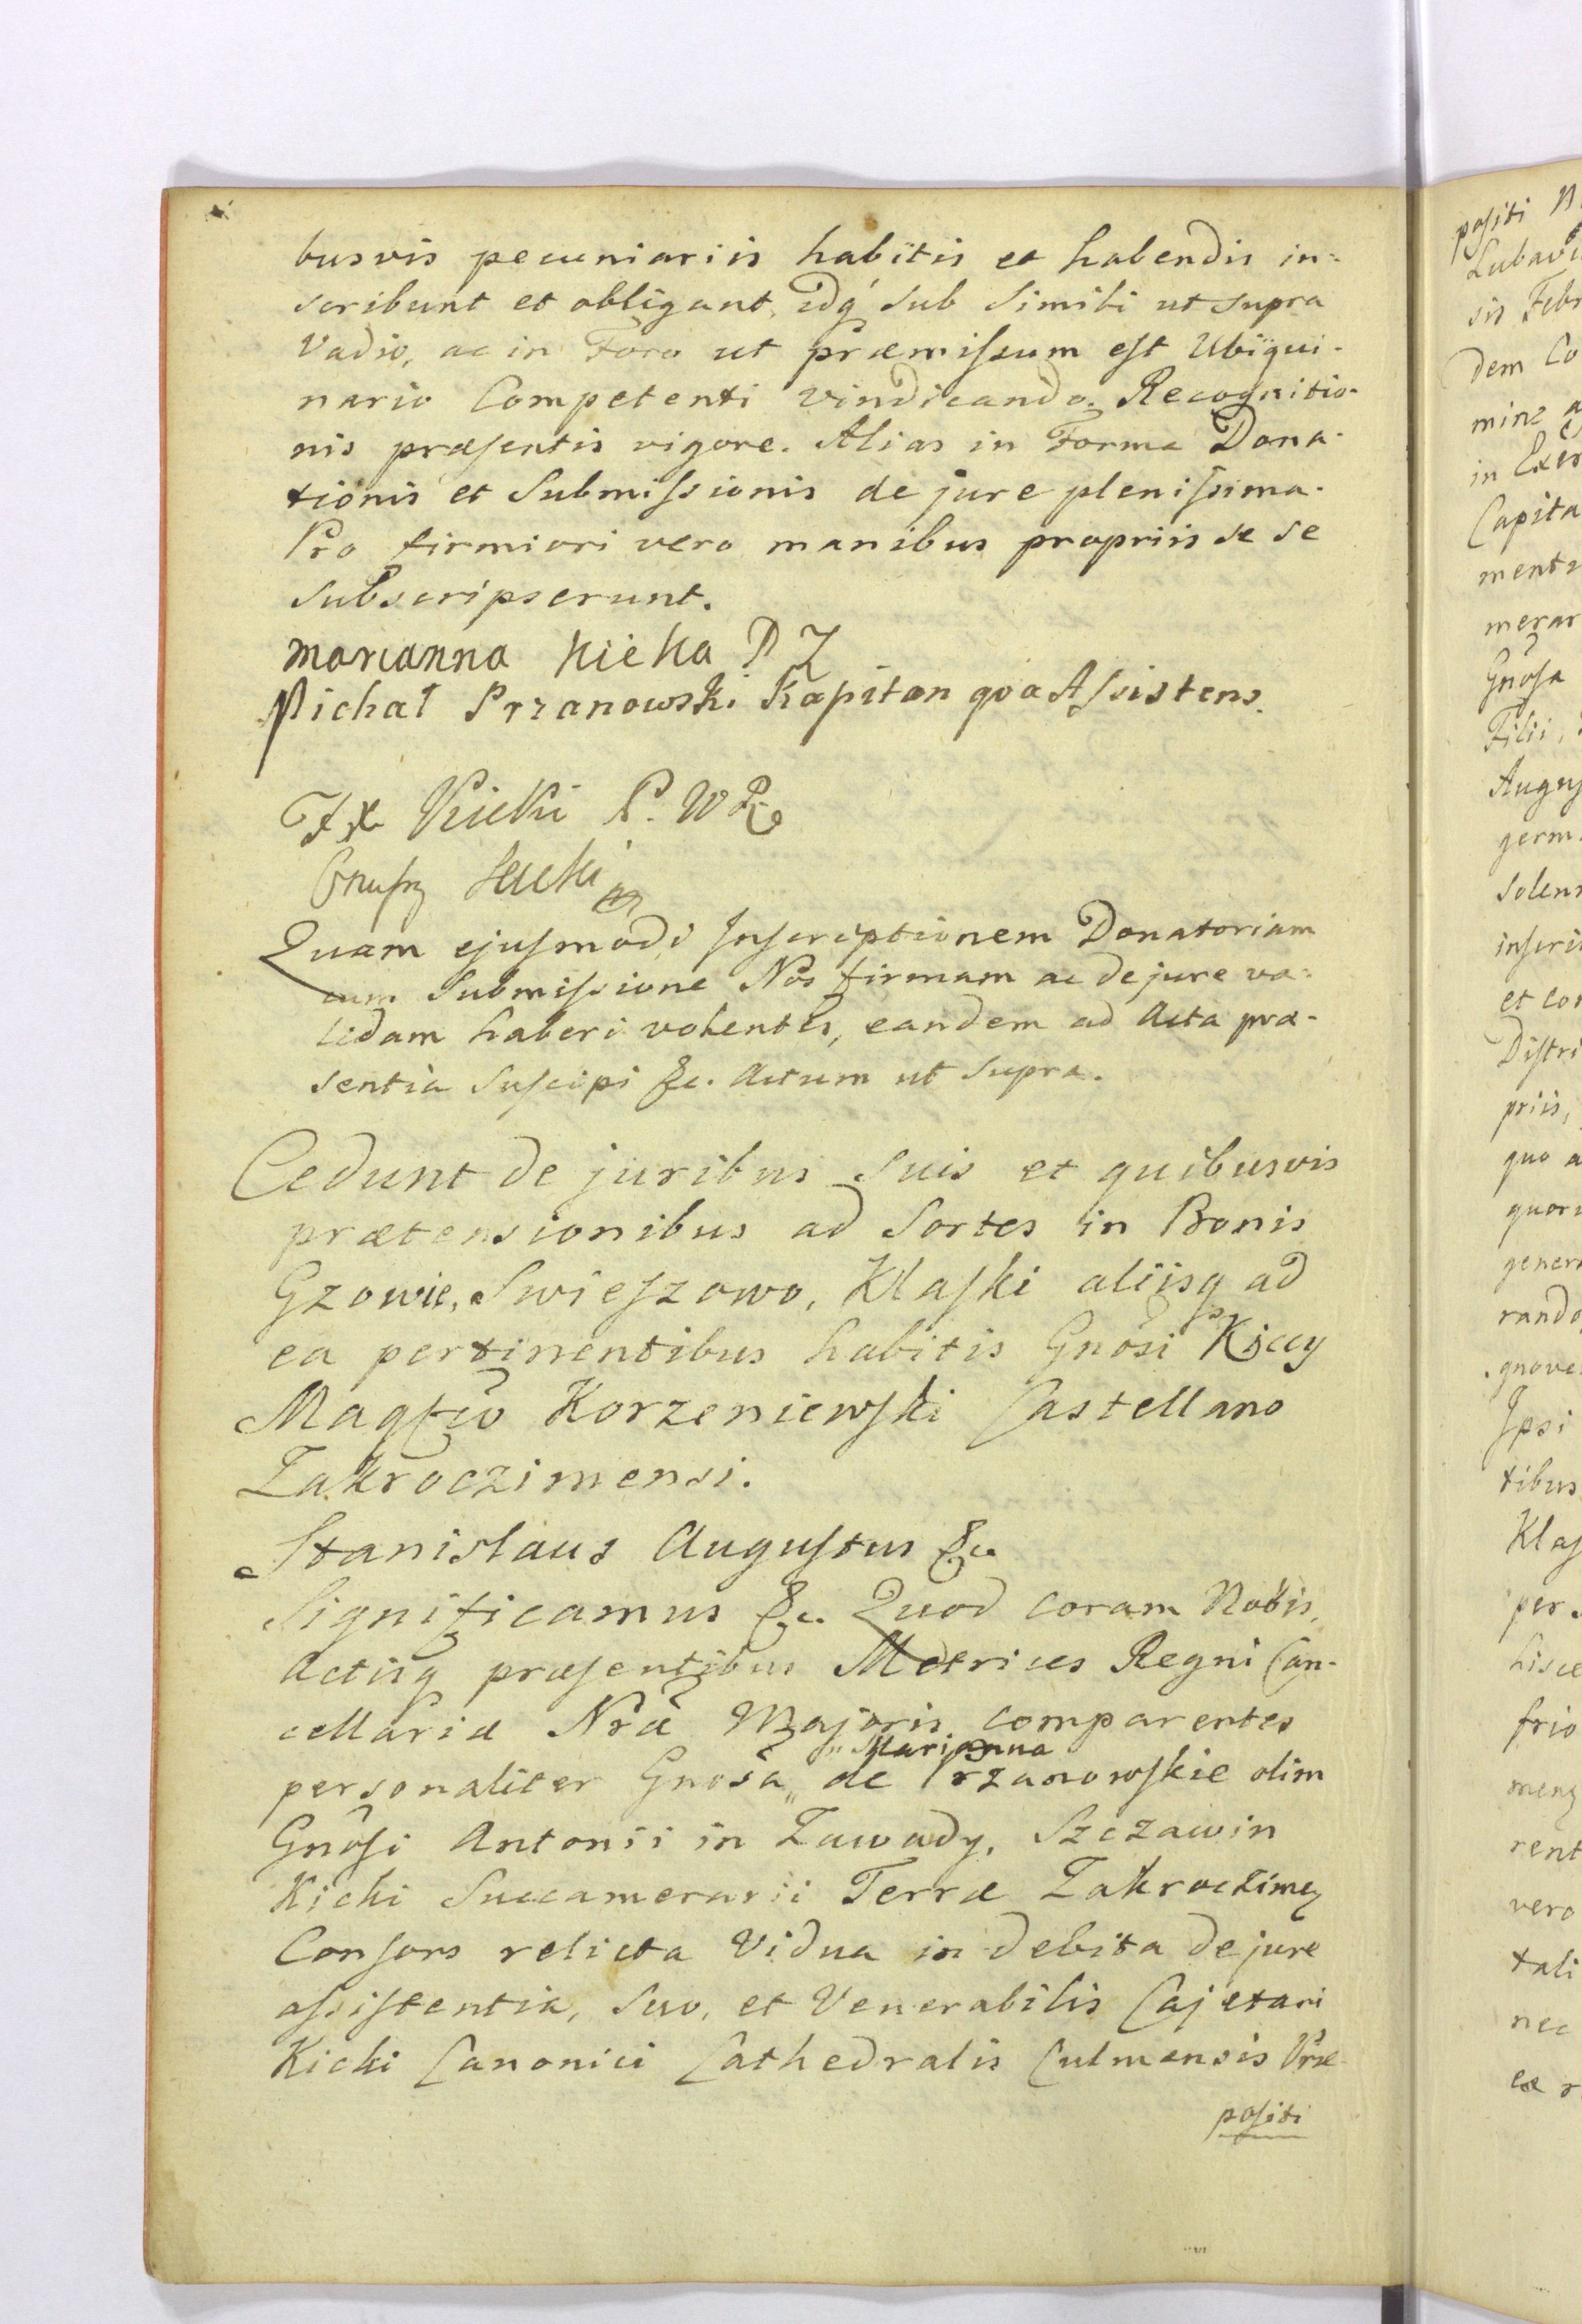 busvis pecuniariis habitis et habendis in-
scribunt et obligant, idq́ sub simili ut supra
Vadio, ac in Foro ut præmissum est Ubiqui-
nario Competenti vindicando. Recognitio-
nis præsentis vigore. Alias in Forma Dona-
tionis et Submissionis de jure plenissima.
Pro firmiori vero manibus propriis se se
subscripserunt.
Marianna Kicka P Z
Michał Przanowski Kapitan qva Assistens.
Kicki P. W
Kicki
Quam ejusmodi Inscriptionem Donatoriam
cum Submissione Nos firmam ac de jure va-
lidam haberi volentes, eandem ad Acta præ-
sentia suscipi &c. Actum ut supra.
Cedunt de juribus suis et quibusvis
prætensionibus ad Sortes in Bonis
Gzowie, Swieszowo, Klaski aliisq ad
ea pertinentibus habitis Gnosi Kiccy
Magfco Korzeniewski Castellano
Zakroczimensi.
Stanislaus Augustus &c.
Significamus &c. Quod coram Nobis,
Actisq præsentibus Metrices Regni Can-
cellariæ Nræ Majoris comparentes
„Marianna
personaliter Gnosa „ de Przanowskie olim
Gnosi Antonii in Zawady, Szczawin
Kicki Succamerarii Terræ Zakroczimeȝ
Consors relicta Vidua in debita de jure
assistentia, suo, et Venerabilis Cajetani
Kicki Canonici Cathedralis Culmensis Præ-
positi
positi
sis Febr
dem Co
in Exer
Capita
merar
Gnosa
Filii,
Augus
germ.
solen
inscri
et con
Distri
priis,
quo a
gener
rando
Ipsi
tibus
Klas
per
hisce
rent
vero
tali
nec